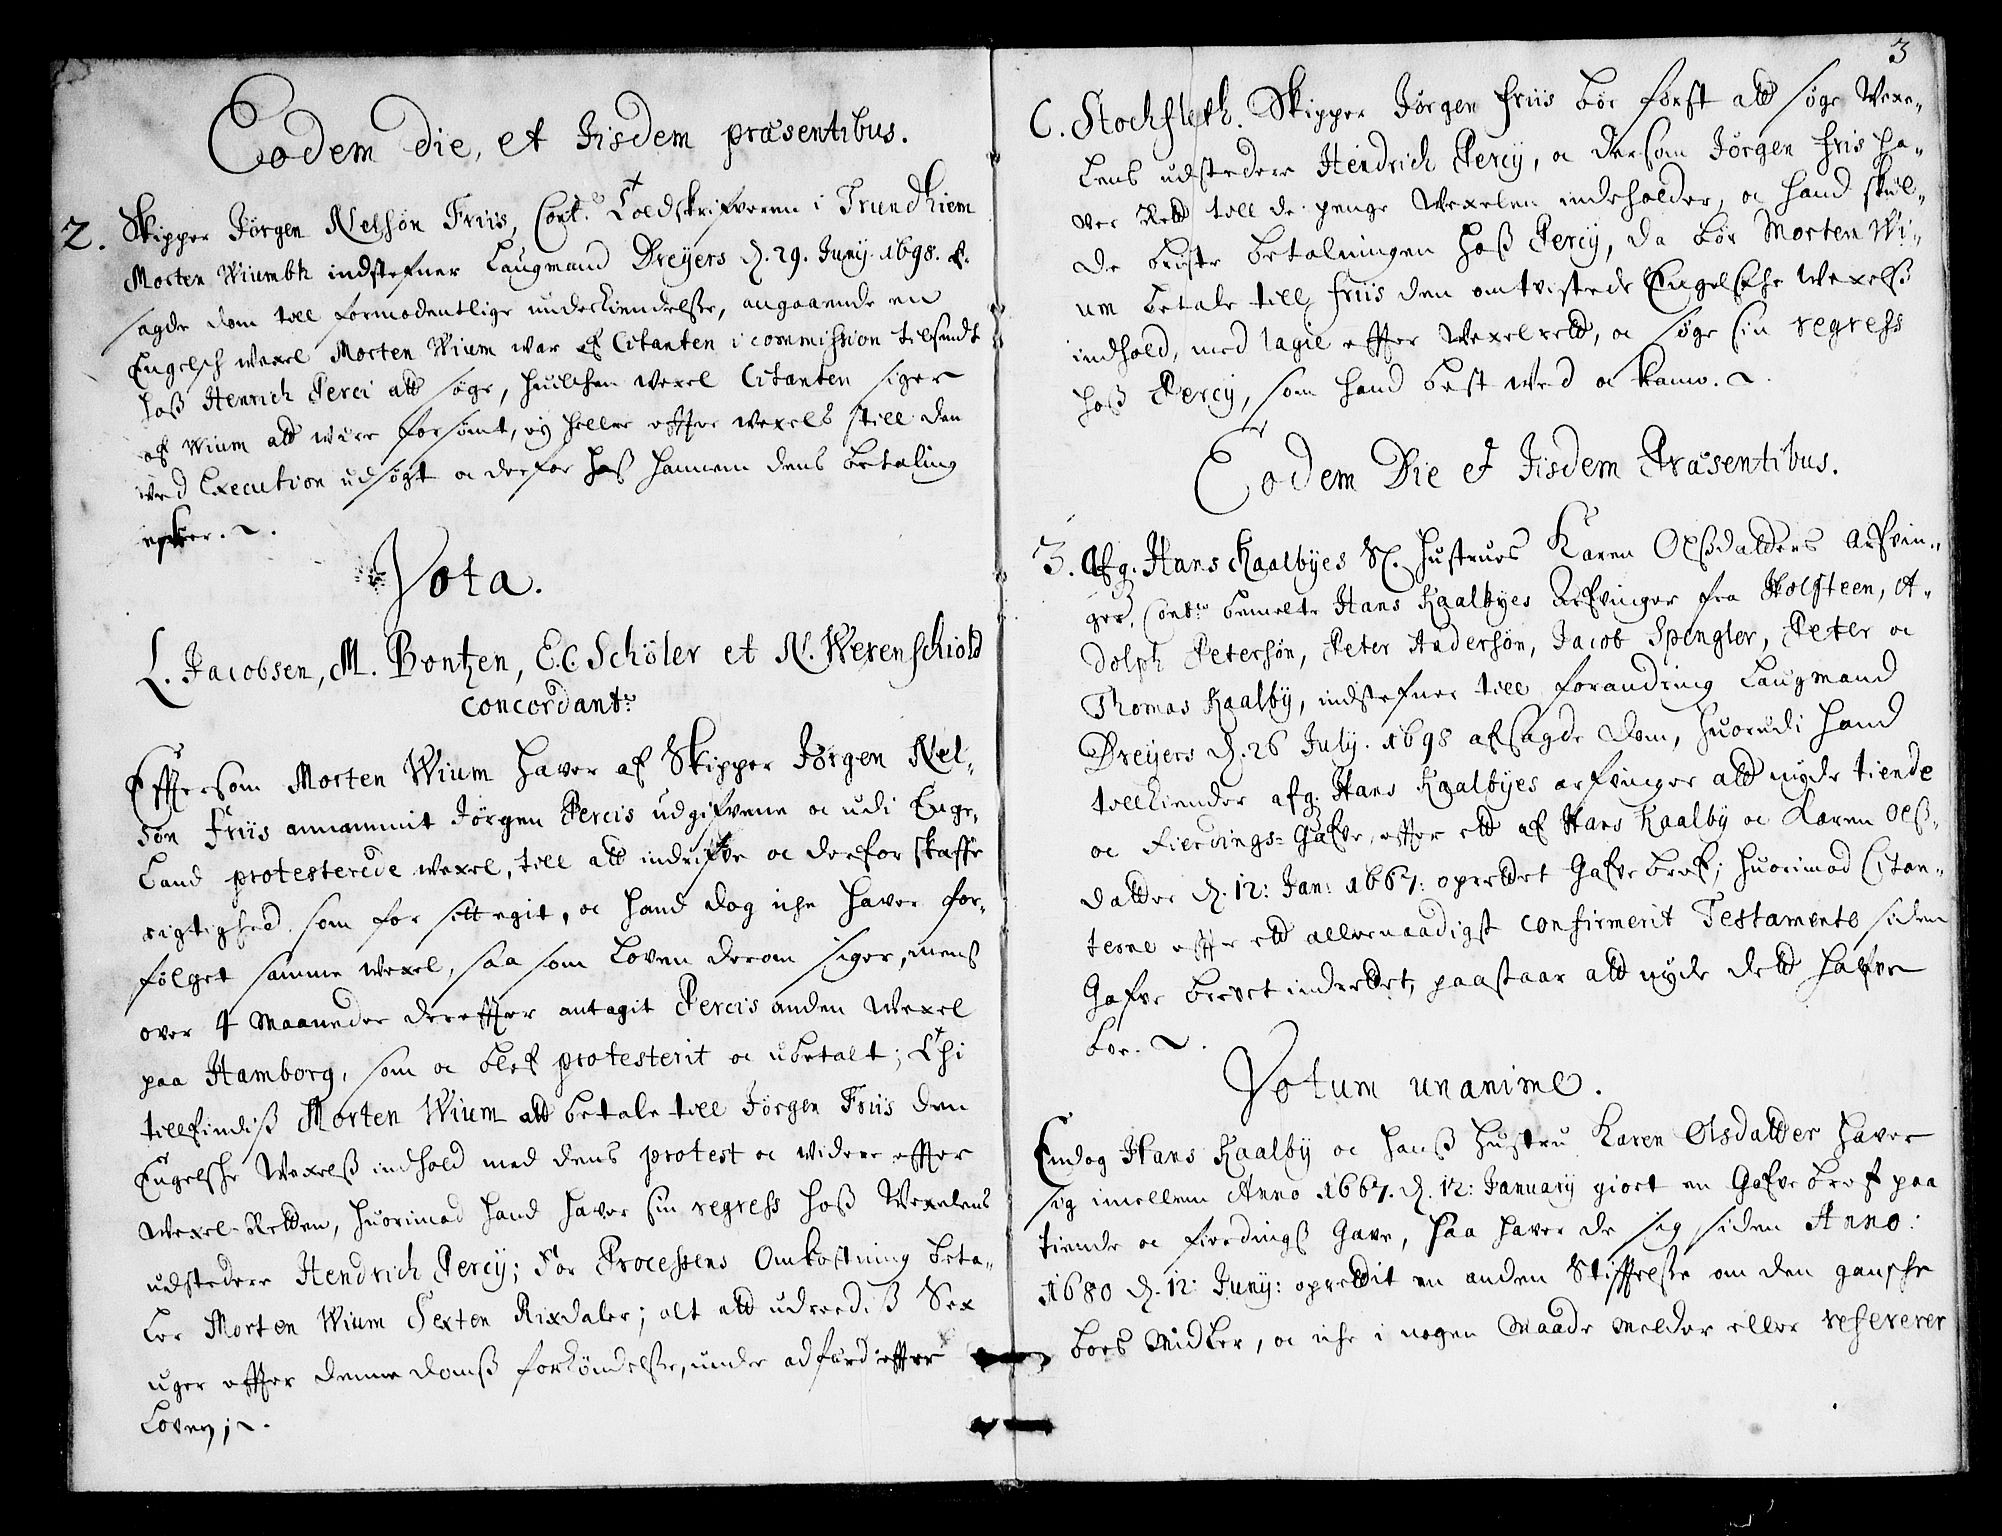 Eodem die, et Jisdem præsentibus.
2. Skipper Jørgen Nelsøn Friis, Cont: Toldskrifveren i Trundhiem
Morten Wiumbh indstefner Laugmand Dreyers d. 29. Junij 1698. af-
sagde dom till formodentlige underkiendelsse, angaaende en
Engelsch wexel Morten Wium war af Citanten i commission tilsendt
hoß Henrich Perci att søge, huilchen wexel Citanten siger
af Wium att were forsømt, ej heller effter wexels still den
ved Execution udsøgt oc derfor hoß hannem dens betaling
esker. ~.
Vota.
L. Jacobsen, M. Bontzen, E. C Schöler et N. Werenschiold
concordant:
Effersom Morten Wium haver af Skipper Jørgen Nel-
søn Friis annammit Jørgen Percis udgifvene oc udi Enge-
Land protesterede wexel, till att indrifve oc derfor skaffe
rigtighed som for sitt egit, oc hand dog iche haver for-
følget samme wexel, saa som Loven derom siger, mens
over 4 Maaneder dereffter antagit Percis anden Wexel
paa Hamborg, som oc blef protesterit oc ubetalt; Thi
tillfindiß Morten Wium att betale till Jørgen Friis den
Engelsche Wexelß indhold med dens protest oc widere effter
Wexel-Retten, huorimod hand haver sin regress hoß Wexelens
udstedere Hendrich Percij; For Processens Omkostning beta-
ler Morten Wium Sexten Rixdaler; alt att udreediß Sex
uger effter denne domß forkyndelsse, under adfærd effter
Loven; ~.
3
C. Stochfleth. Skipper Jørgen Friis bør først att søge Wexe-
lens udstedere Hendrich Percij, oc dersom Jørgen Fris ha-
ver Rett till de penge Wexelen indeholder, oc hand skul-
de briste betalningen hoß Percij, da bør Morten Wi-
um betale till Friis den omtvistede Engelsche Wexelß
indhold, med lagie effter Wexelrett, oc søge sin regress
hoß Percij, som hand best wed oc kand. ~.
Eodem Die et Jisdem Præsentibus.
3. Afg. Hans Kaalbyes Sl. Hustrues Karen Olßdatters Arfvin-
ger, Contr: bemelte Hans Kaalbyes Arfvinger fra Holsteen, A-
dolph Petersøn, Peter Andersøn, Jacob Spengler, Peter oc
Thomas Kaalby, indstefner till forandring Laugmand
Dreyers d. 26 July. 1698 afsagde dom, huorudi hand
tillkiender afg. Hans Kaalbyes arfvinger att nyde tiende
oc Fierdings-Gafve, effter ett af Hans Kaalby oc Karen Olß-
datter d. 12: Jan: 1667: oprettet Gafve bref; huorimod Citan-
terne effter ett allernaadigst confirmerit Testamente siden
Gafve brevet indrettet, paastaar att nyde dett halfve
boe. ~.
Votum unanime.
Endog Hans Kaalby oc hanß hustru Karen Olsdatter haver
sig imellem Anno 1667. d. 12: January giort en Gafve bref paa
tiende oc fierdingß Gave, Saa haver de sig siden Anno:
1680 d. 12: Junij: oprettit en anden Stifftelsse om den gansche
boes Midler, oc iche i nogen Maade melder eller refererer